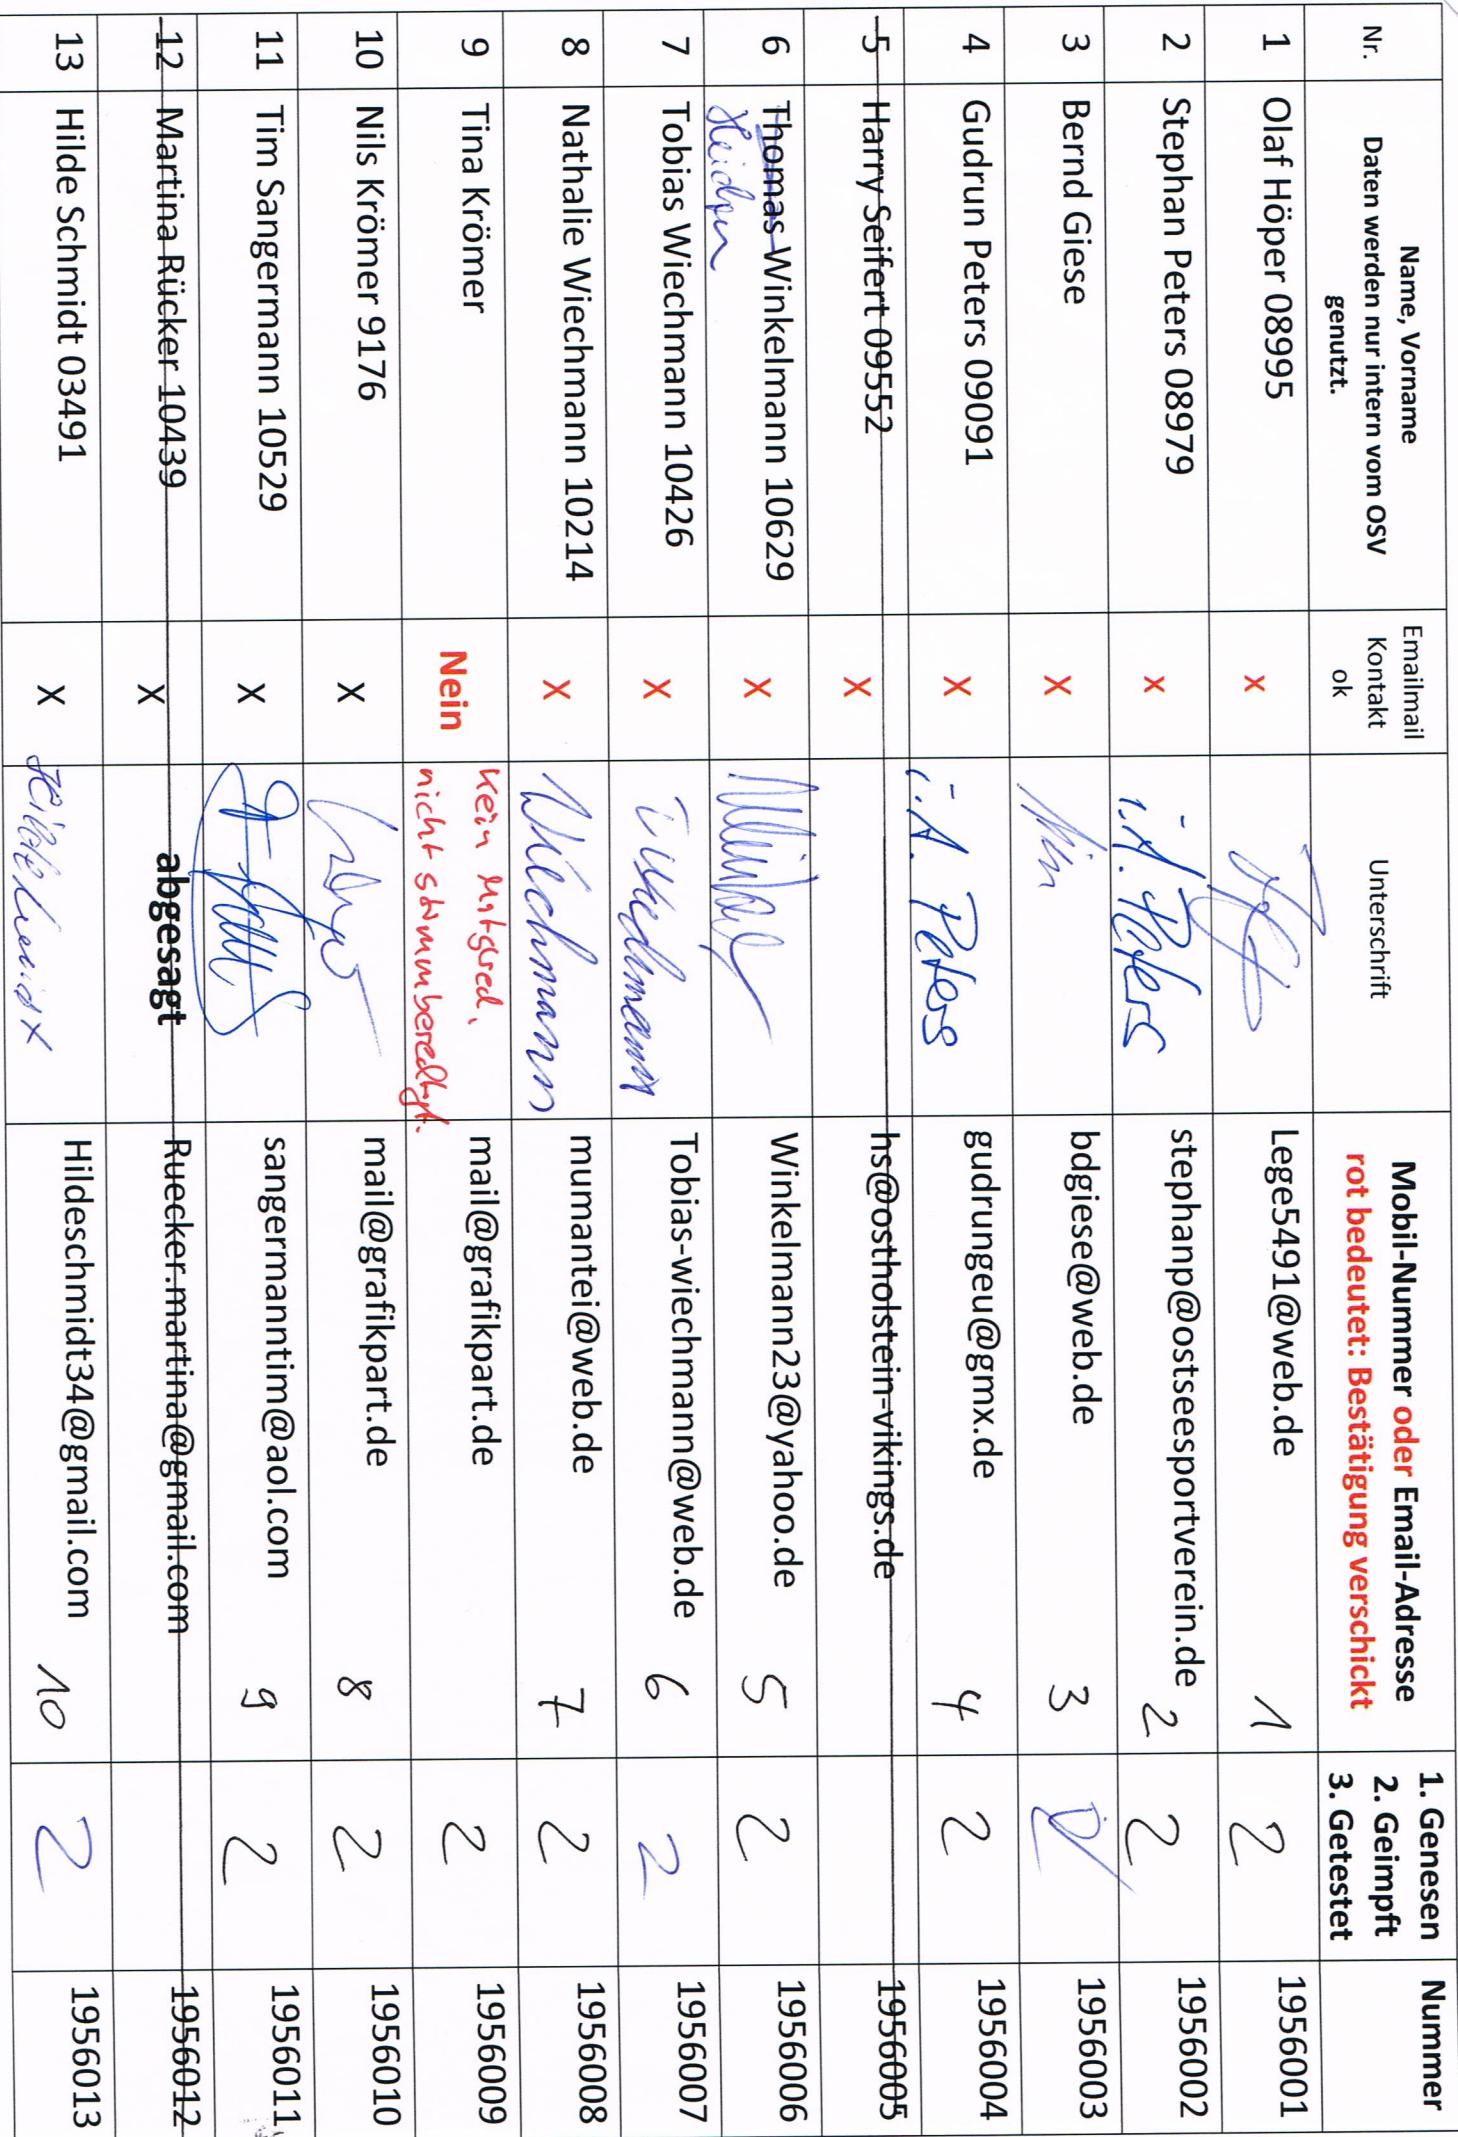 Nr. Name, Vorname Daten werden nur intern vom OSV genutzt. Emailmail Kontakt ok Unterschrift Mobil-Nummer oder Email-Adresse rot bedeutet: Bestätigung verschickt 1. Genesen 2. Geimpft 3. Getestet Nummer
1 Olaf Höper 08995 X Lege5491@web.de 1 2 1956001
2 Stephan Peters 08979 X i.A. Peters stephanp@ostseesportverein.de 2 2 1956002
3 Bernd Giese X bdgiese@web.de 3 1956003
4 Gudrun Peters 09091 X i.A. Peters gudrungeu@gmx.de 4 2 1956004
5 Harry Seifert 09552 X hs@ostholstein-vikings.de 1956005
6 Thomas Winkelmann 10629 X Winkelmann23@yahoo.de 5 2 1956006
7 Tobias Wiechmann 10426 X T. Wiechmann Tobias-wiechmann@web.de 6 2 1956007
8 Nathalie Wiechmann 10214 X Wiechmann mumantei@web.de 7 2 1956008
9 Tina Krömer Nein kein Mitglied, nicht stimmberechtigt. mail@grafikpart.de 2 1956009
10 Nils Krömer 9176 X mail@grafikpart.de 8 2 1956010
11 Tim Sangermann 10529 X sangermanntim@aol.com 9 2 1956011
12 Martina Rücker 10439 X abgesagt Ruecker.martina@gmail.com 1956012
13 Hilde Schmidt 03491 X Hilde Schmidt Hildeschmidt34@gmail.com 10 2 1956013